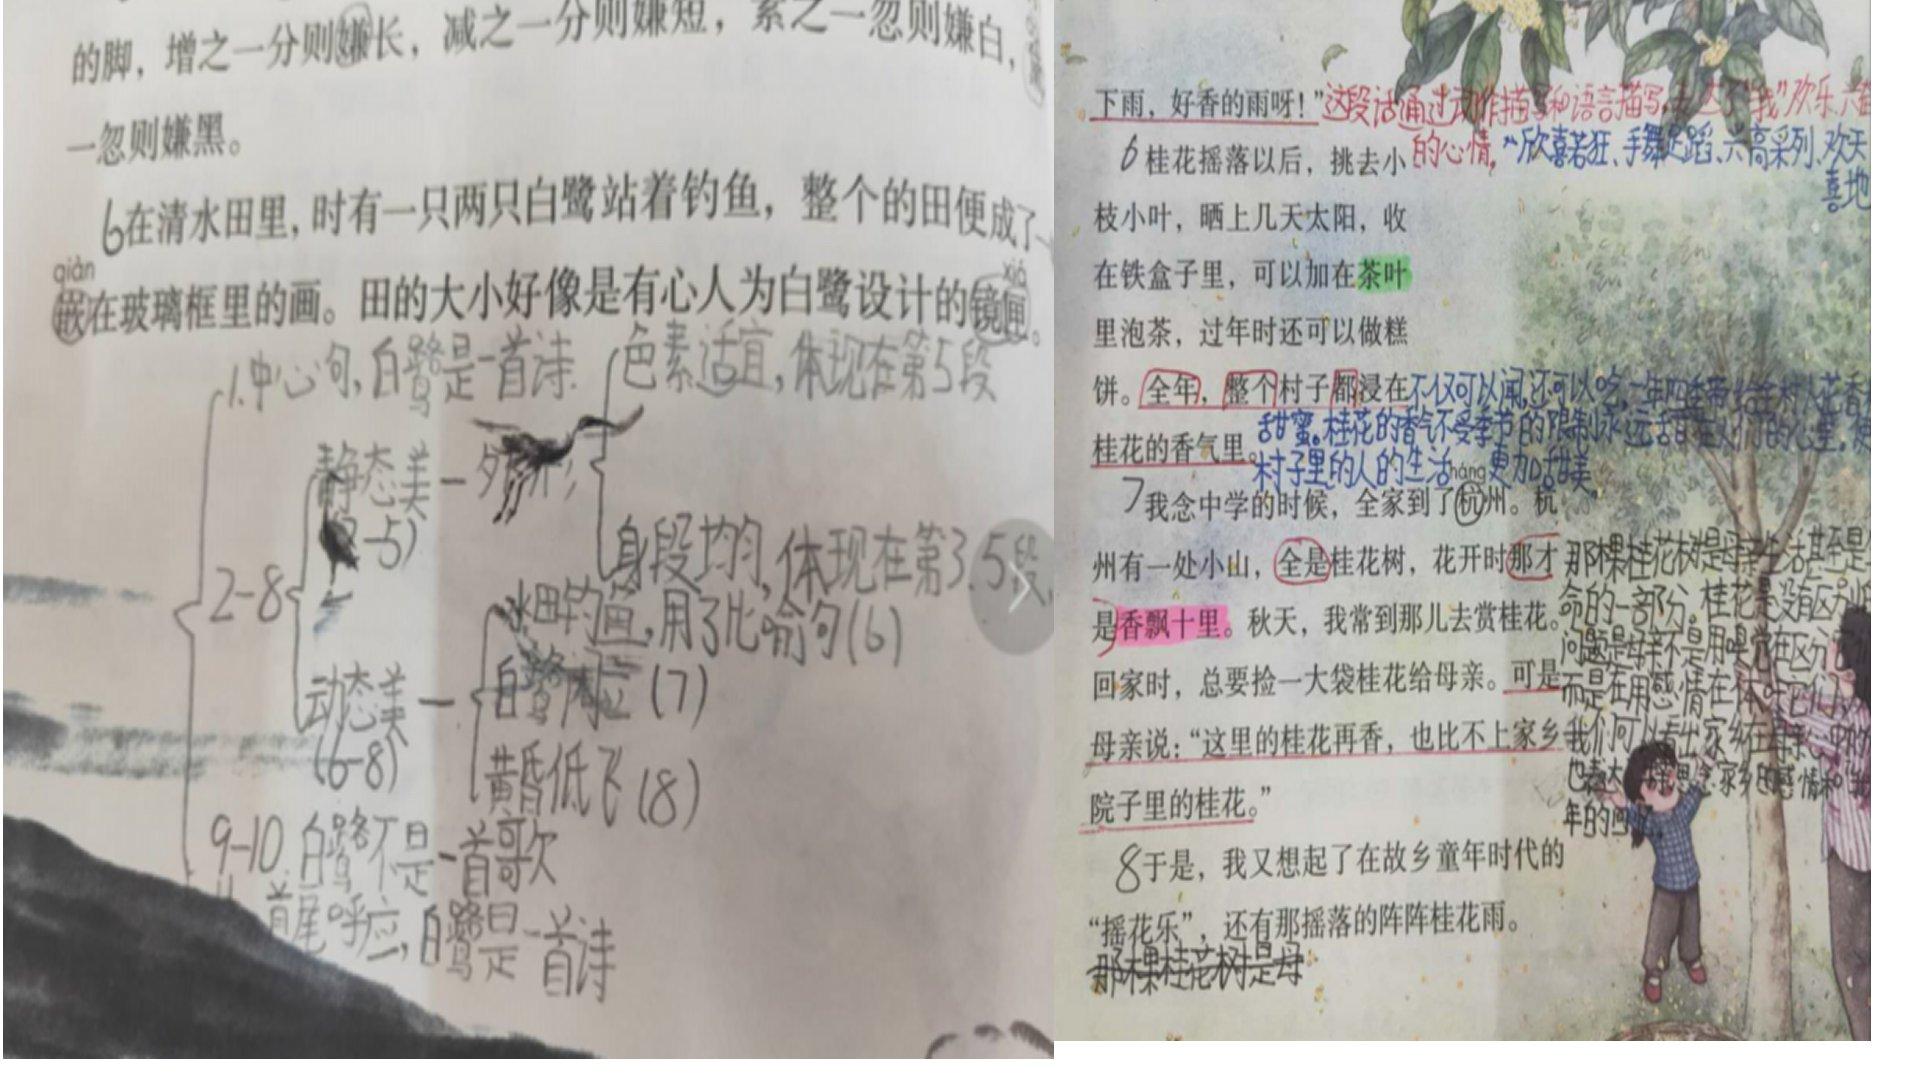 的脚，增之一分则嫌长，减之一分则嫌短，素之一忽则嫌白，
一忽则嫌黑。
6在清水田里，时有一只两只白鹭站着钓鱼，整个的田便成了一
qiàn
xiá
嵌在玻璃框里的画。田的大小好像是有心人为白鹭设计的镜匣。
1.中心句，白鹭是一首诗
色素适宜，体现在第5段
静态美—
-5)
身段均匀，体现在第3.5段.
2-8
水田钓鱼，用了比喻句(6)
动态美—
白鹭 (7)
(6-8)
黄昏低飞(8)
9-10.白鹭不是一首歌
首尾呼应，白鹭是一首诗
下雨，好香的雨呀！”这段话通过动作描写和语言描写，表达了“我”欢乐、兴奋
的心情，“欣喜若狂、手舞足蹈、兴高采列、欢天
喜地
6桂花摇落以后，挑去小
枝小叶，晒上几天太阳，收
在铁盒子里，可以加在茶叶
里泡茶，过年时还可以做糕
饼。全年，整个村子都浸在不仅可以闻，还可以吃，一年四季带给全村人花香
甜蜜。桂花的香气不受季节的限制永远活着在人们的心里，使
桂花的香气里。
村子里的人的生活更加甜美
háng
7我念中学的时候，全家到了杭州。杭
州有一处小山，全是桂花树，花开时那才
是香飘十里。秋天，我常到那儿去赏桂花。
回家时，总要捡一大袋桂花给母亲。可是
母亲说：“这里的桂花再香，也比不上家乡
院子里的桂花。”
那棵桂花树是母亲生活甚至是生
命的一部分。桂花是没有区别的
问题是母亲不是用嗅觉在区分
而是在用感情在体味它们
我们可以看出家乡在母亲心中的
也表达了 思念家乡的感情和
年的
8于是，我又想起了在故乡童年时代的
“摇花乐”，还有那摇落的阵阵桂花雨。
那棵桂花树是母